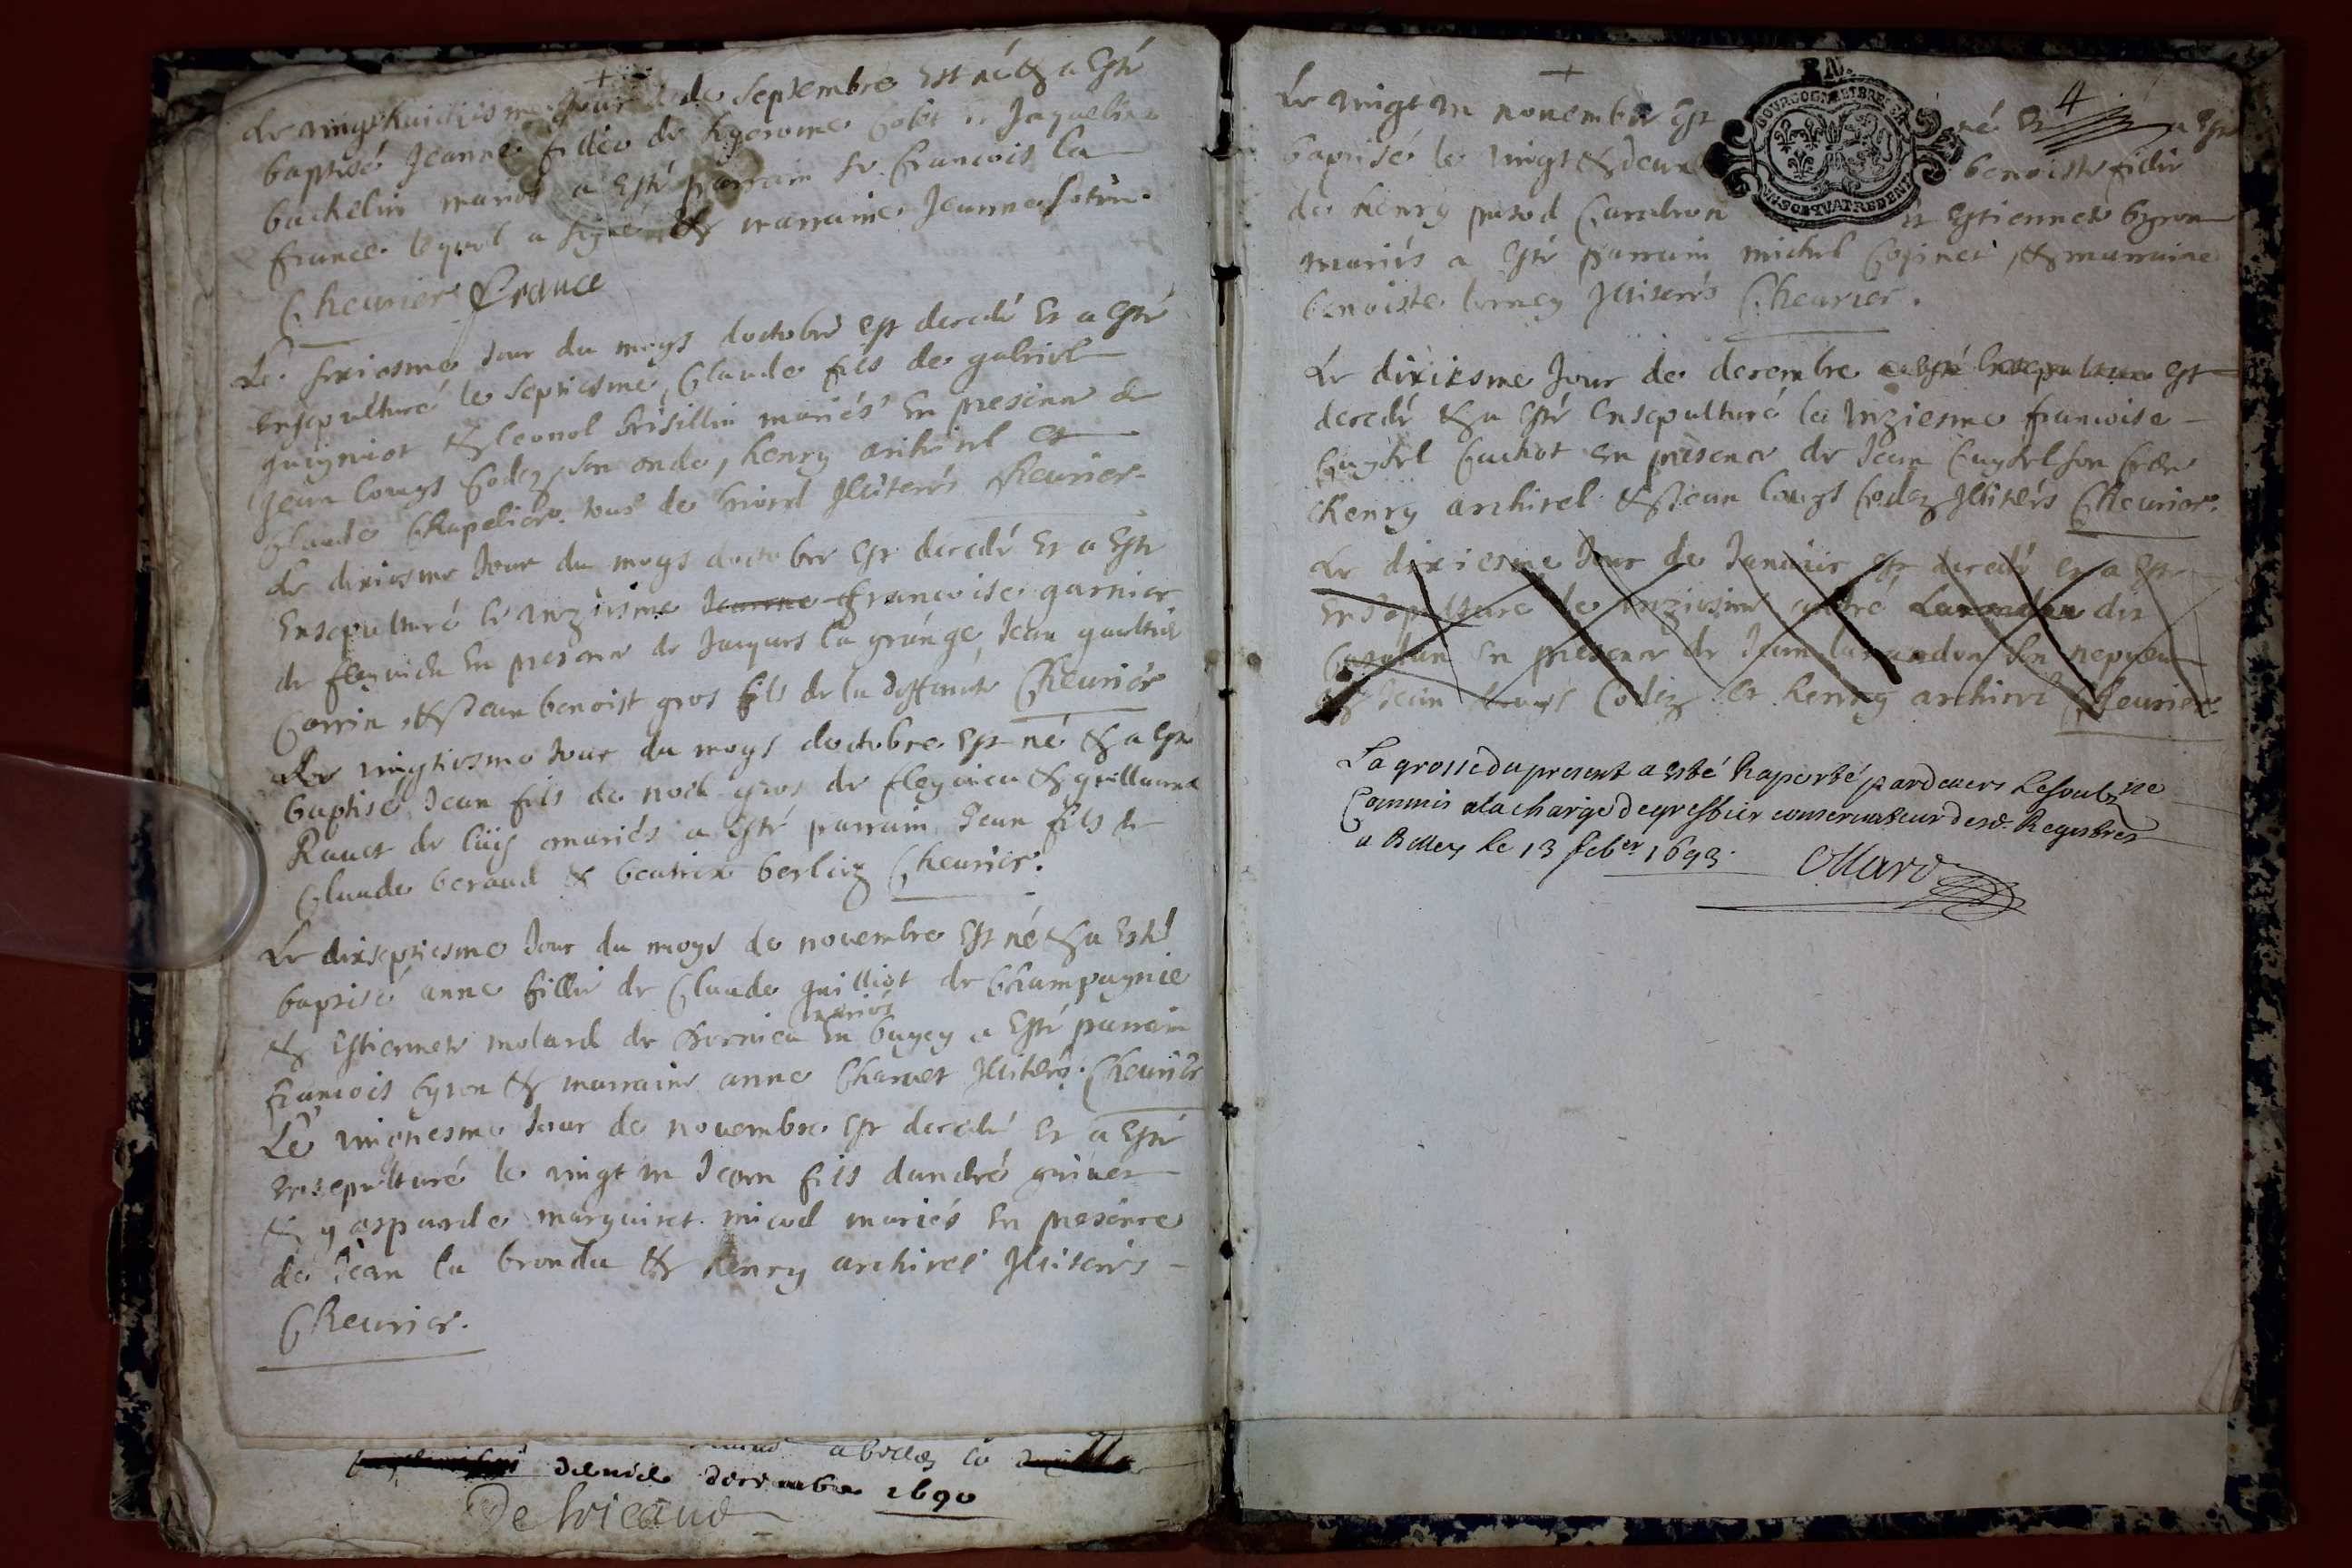 Le vingt huictiesme Jour de septembre Est né & a Esté
baptisé Jeanne fillie de hyerome et Jaqueline
bachelin mariés a Esté parrain sr. francois la
france lequel a signé & marraine Jeanne
Cheurier france
Le sixiesme Jour du moys doctobre Est decedé Et a Esté
ensepulturé le septiesme, Claude fils de gabriel
guigniot & leonol brisillin mariés En presence de
Jean louys Codez son oncle, henry archirel et
Claude Chapelier tous de briord Illiterés Cheurier
Le dixiesme Jour du moys doctobre Est decedé Et a Esté
Ensepulturé le unziesme Jeanne francoise garnier
de fleyrieu En presence de Jacques la grange, Jean gaultier
Corrin & Jean benoist gros fils de la deffuncte Cheurier
Le vingtiesme Jour du moys doctobre Est né & a Esté
baptisé Jean fils de noel gros de fleyrieu & guillauma
Rauet de mariés a Esté parrain Jean fils de
Claude beraud & beatrix berlioz Cheurier.
Le dixseptiesme Jour du moys de nouembre Est né & a Esté
baptisé anne fillie de Claude guilliot de Champagnie
mariés
& Estiennete molard de En bugey a Esté parrain
francois byron & marraine anne Charuet Illiterés. Cheurier
Le vingtiesme Jour de nouembre Est decedé Et a Esté
ensepulturé le vingt un Jean fils dandré
& gasparde marguiret micud mariés En presence
de Jean la brondu & henry archirel Illiterés
Cheurier.
a belley le
dernier decembre 1690
Le vingt un nouembre Est né Et 4 a Esté
BOURGOGNE ET BRESSE
baptisé le vingt & deux benoiste fillie
de henry Carabron et Estiennete byron
mariés a Esté parrain michel Copinet & marraine
benoiste Illiterés Cheurier.
Le dixiesme Jour de decembre Est
decedé & a Esté Ensepulturé le unziesme francoise
Cuchot En presence de Jean son frere
henry archirel & Jean louys Codez Illiterés Cheurier.
Le dixiesme Jour de Januier Est decedé Et a Esté
Ensepulturé le unziesme andré Larandon dit
Capitan En presence de Jean larandon son nepueu
& Jean louys Codez Et henry archirel Cheurier
La grosse du present a esté Raporté pardeuers Lesoubz ne
Commis a la charge de greffier conseruateur desd. Registres
a Belley le 13 feber 1693.